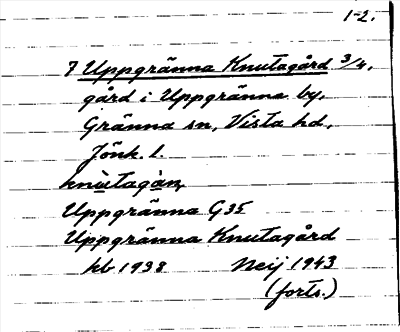 1-2.
7 Uppgränna Knutagård 3/4,
gård i Uppgränna by,
Gränna sn, Vista hd,
Jönk. l.
knu̱taga̱n,
Uppgränna G35
Uppgränna Knutagård
kb 1938 Neij 1943
(forts.)